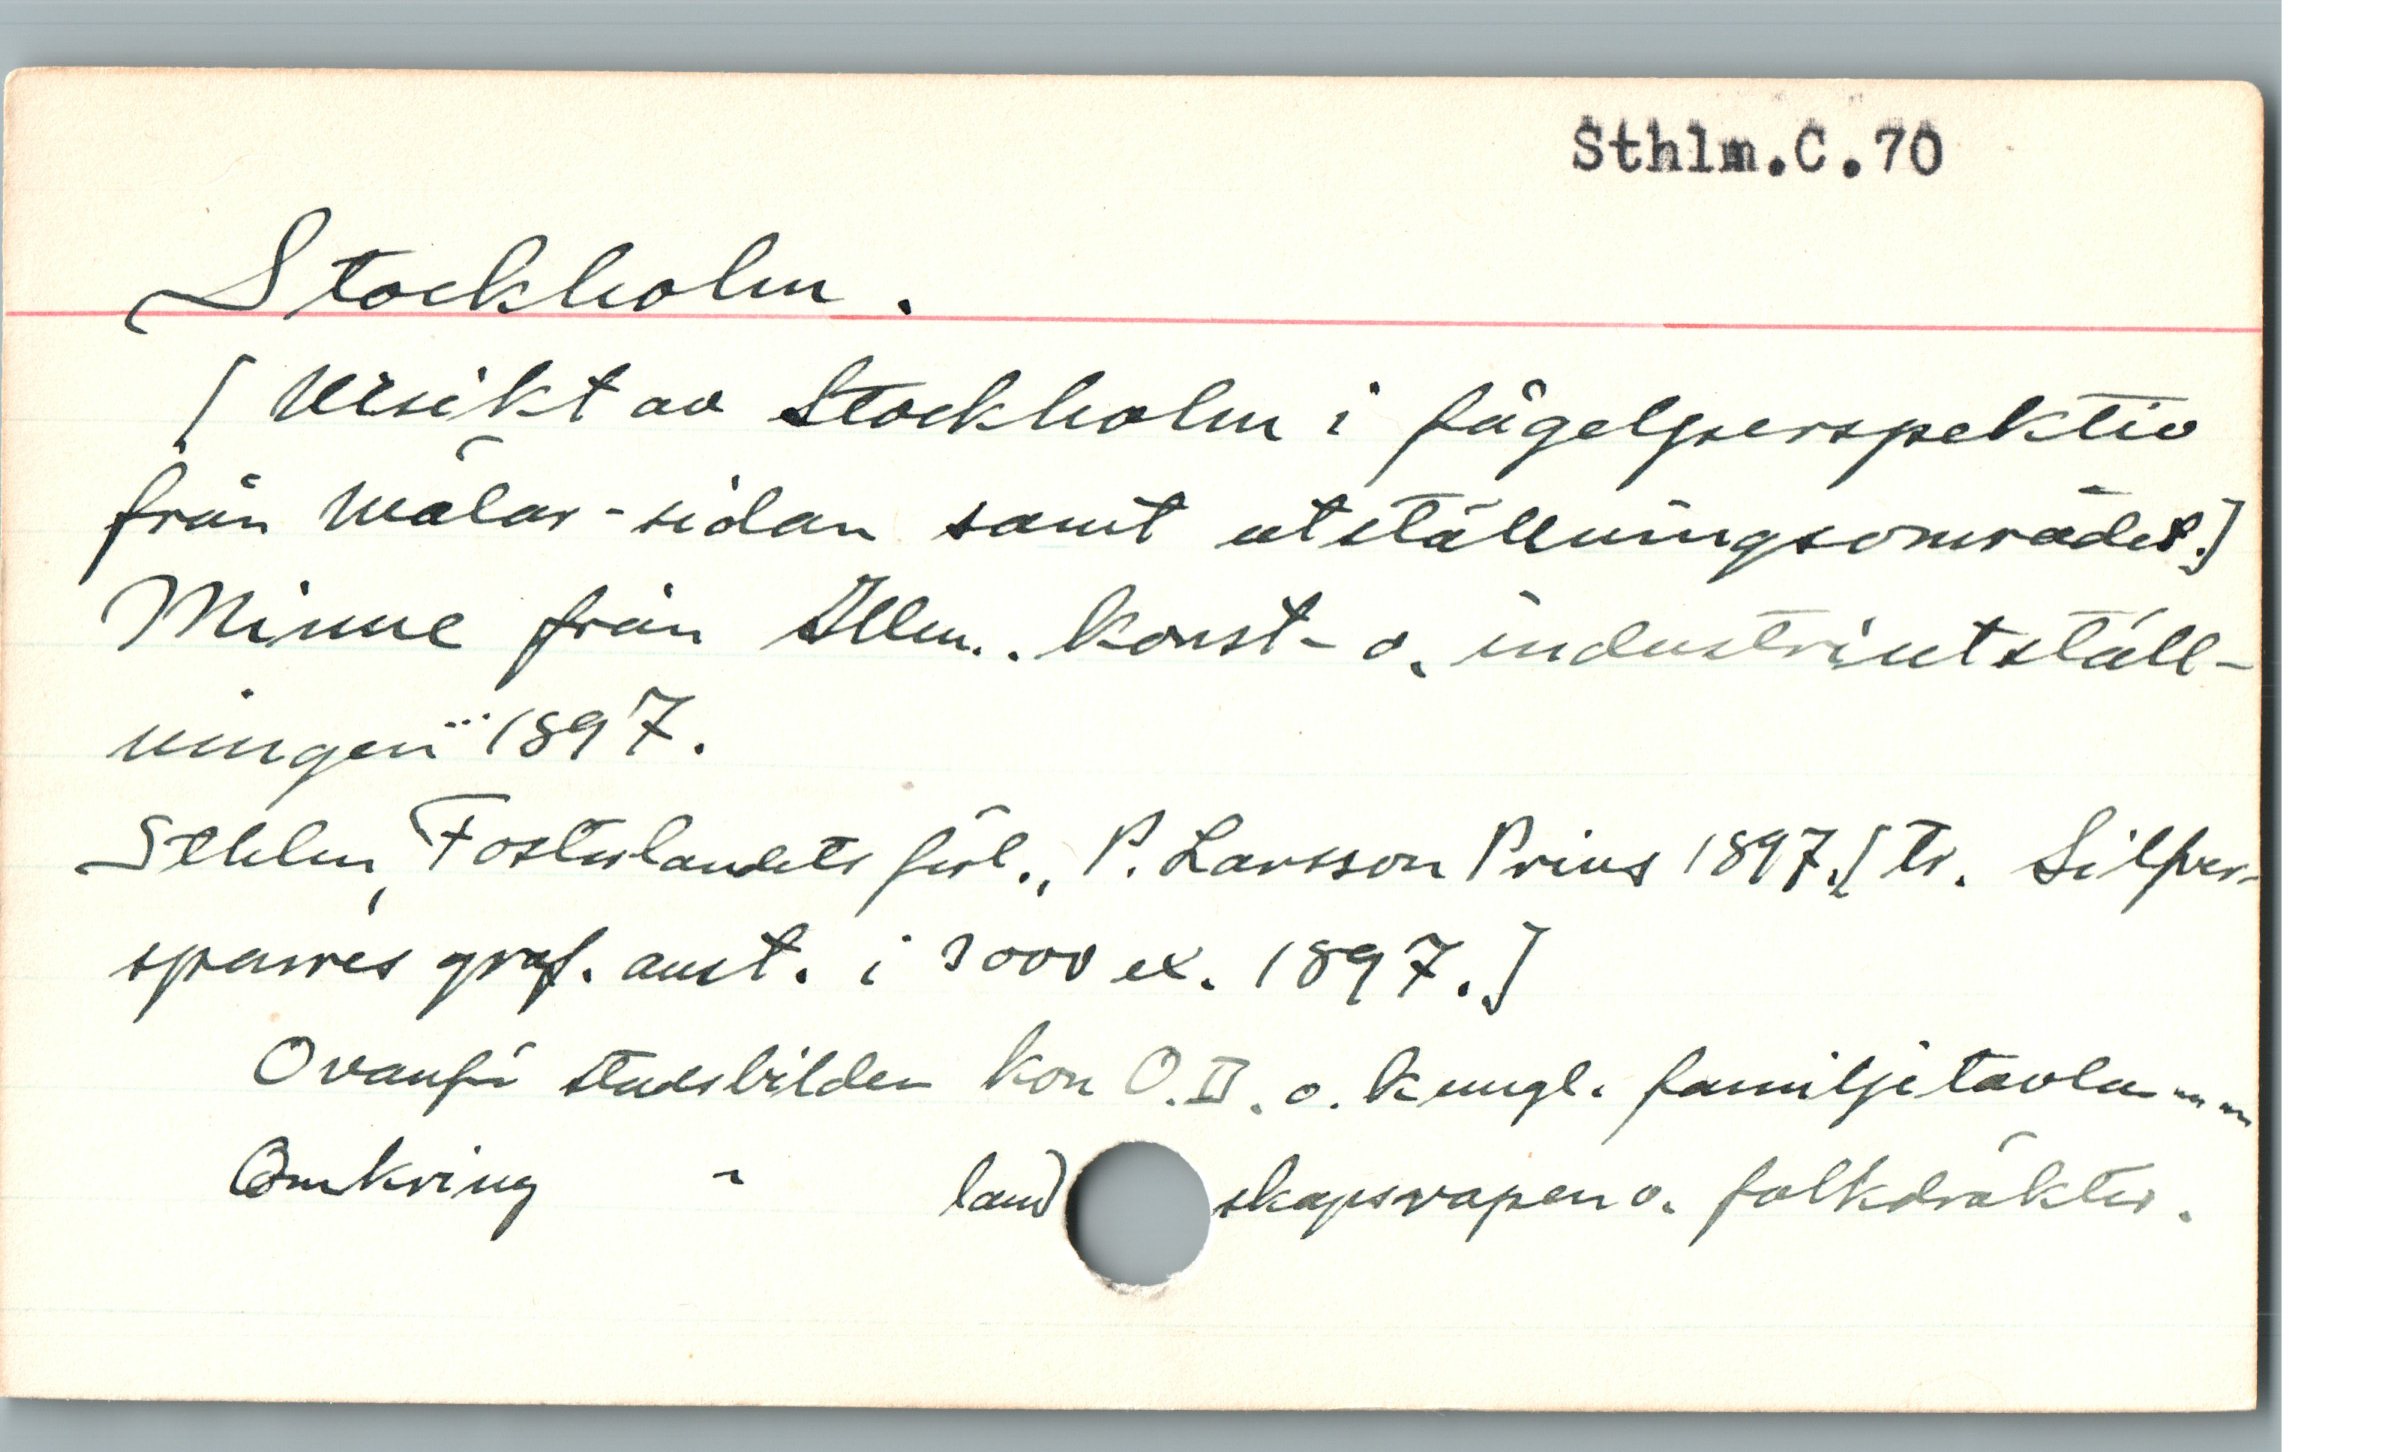 Sthlm.C.70
Stockholm.
[Utsikt av Stockholm i fågelperspektiv
från Mälar-sidan samt utställningsområdet.]
Minne från Allm.. konst- o. industriutställ-
ningen... 1897.
Sthlm, Fosterlandets förl., P. Larsson Prius 1897.[tr. Silfver-
sparres graf. anst. i 3000 ex. 1897.]
Ovanför stadsbilden kon O.II. o. kungl. familjetavlan
Omkring " landskapsvapen o. folkdräkter.